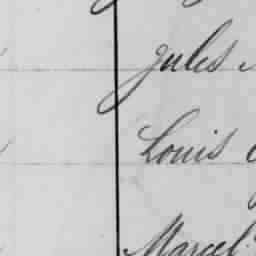 Jules
Louis
Marcel